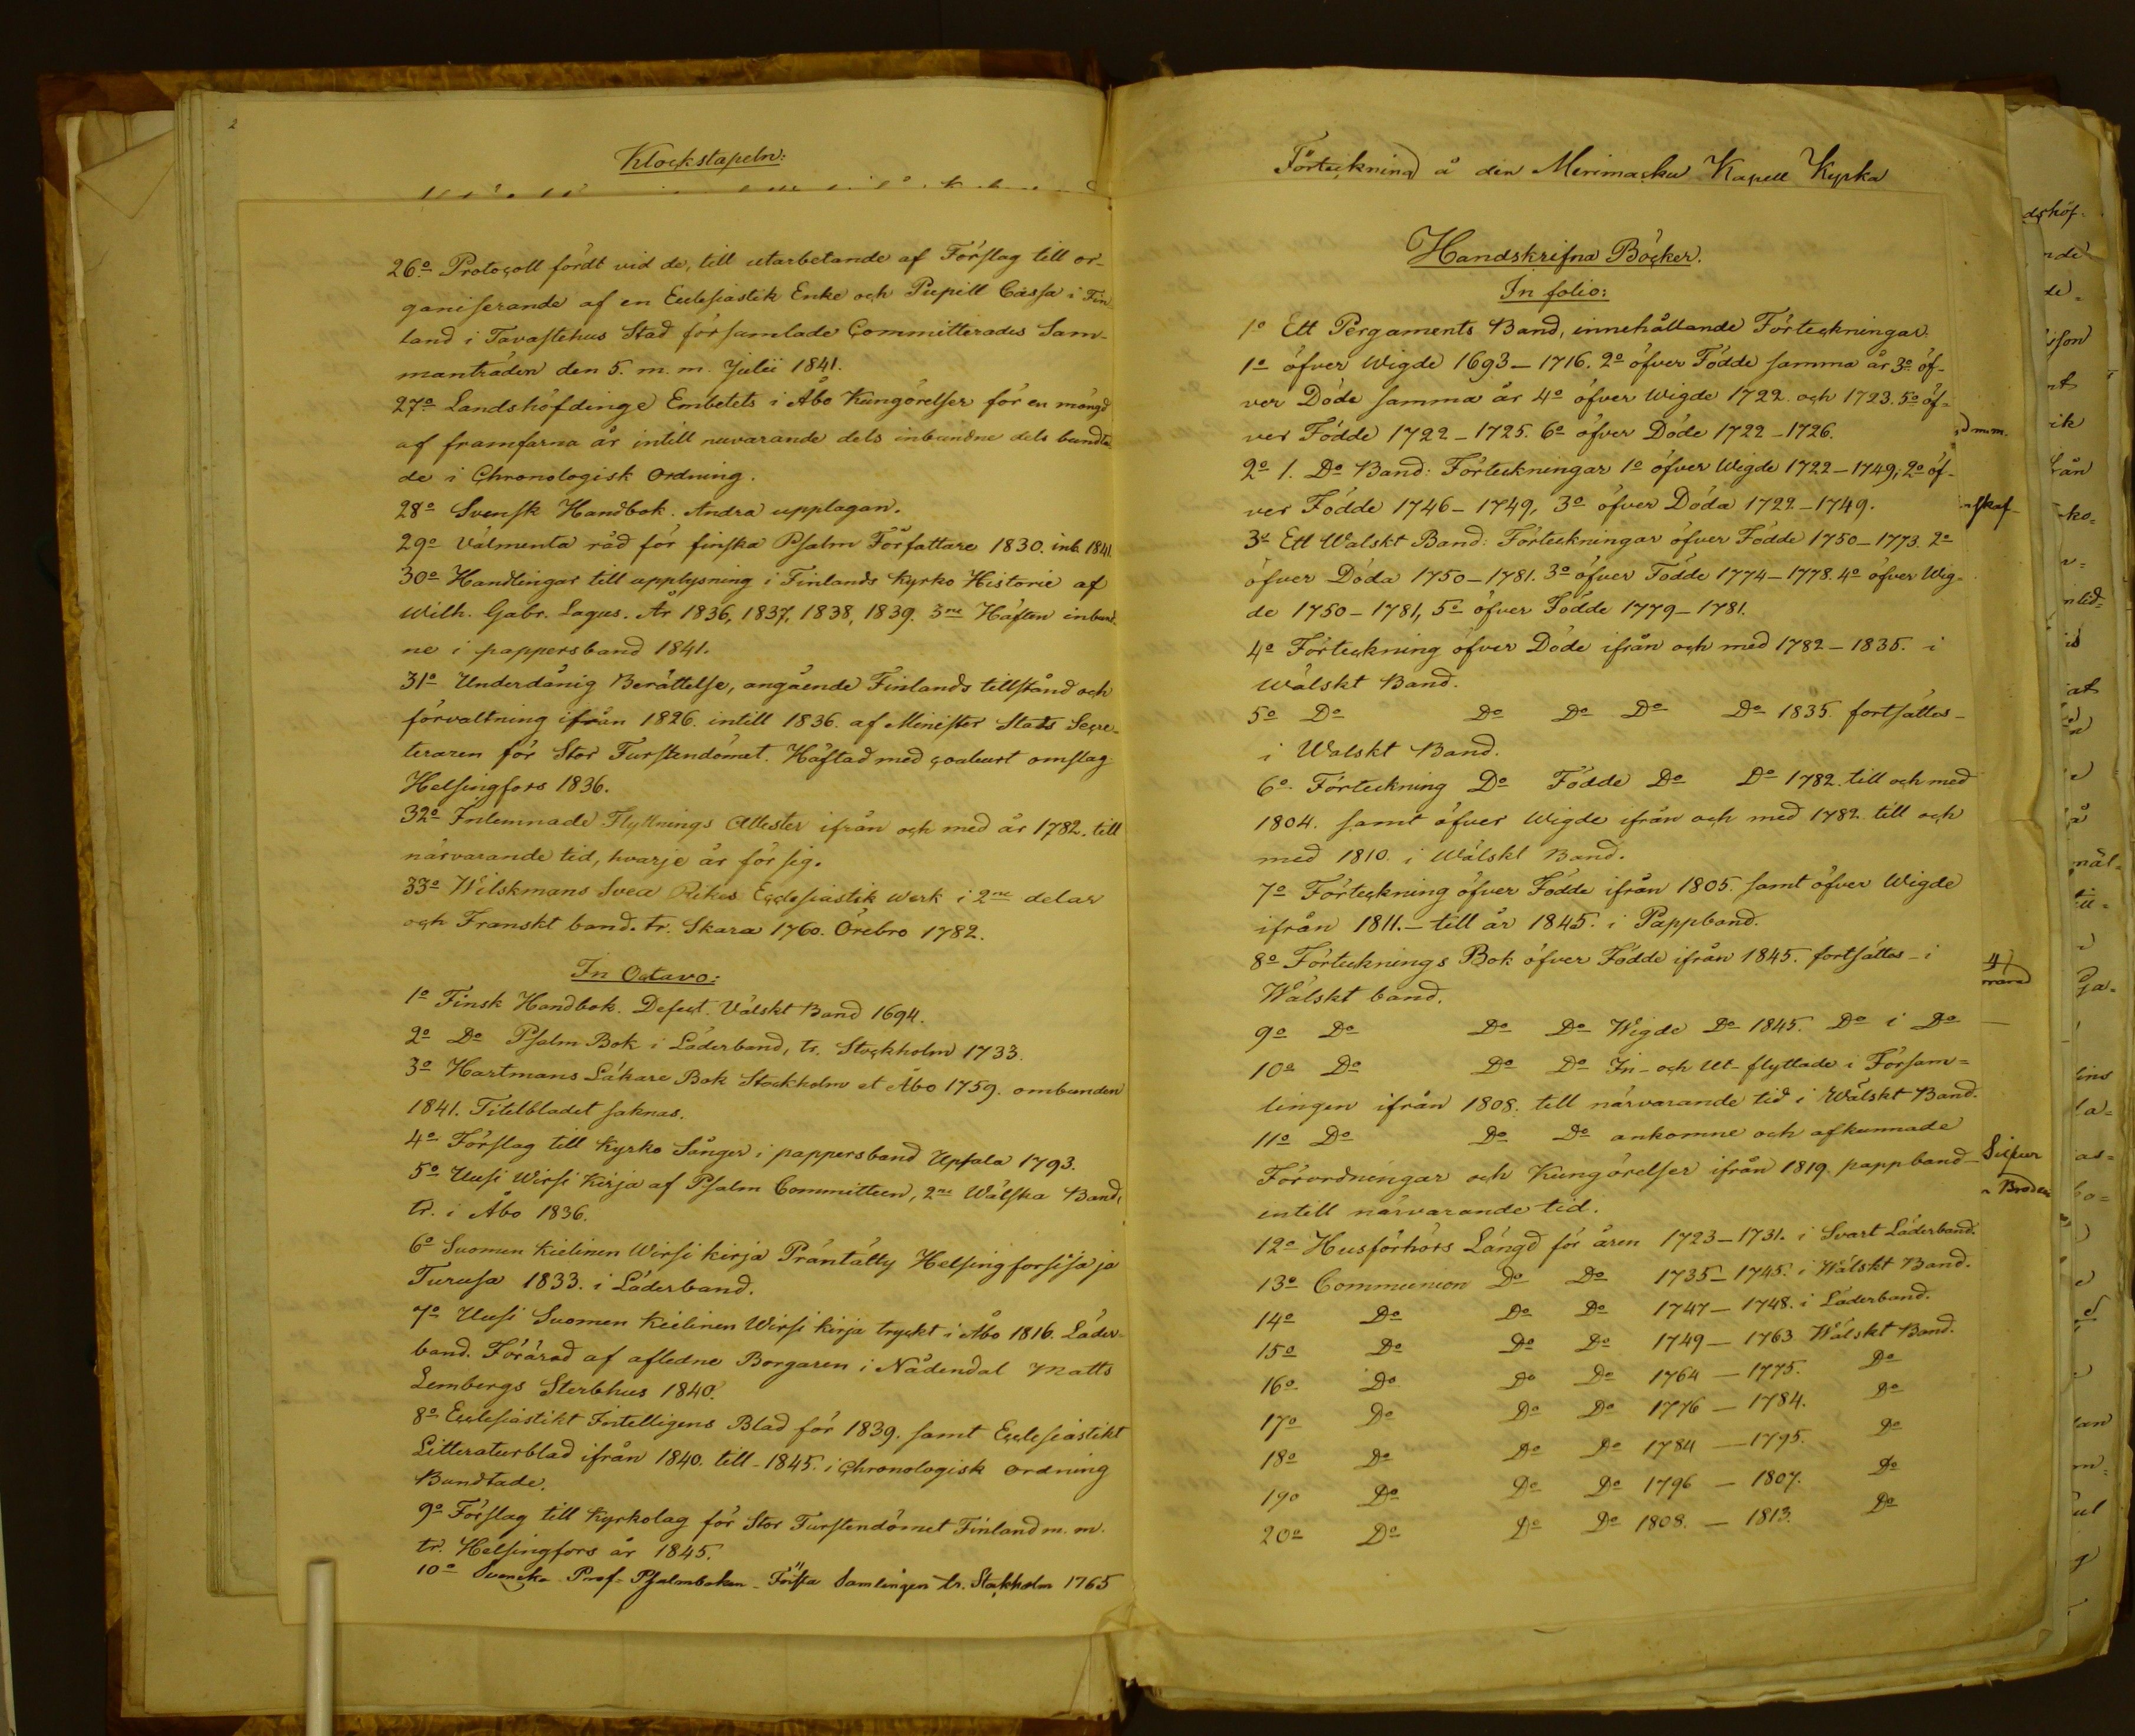 2
Klockstapeln:
26o Protocoll fördt vid de, till utarbetande af Förslag till or-
ganiserande af en Ecclesiastik Enke och Pupill Cassa i Fin
land i Tavastehus Stad församlade Committerades Sam-
manträden den 5. m. m. Julii 1841.
27o Landshöfdinge Embetets i Åbo Kungörelser för en mängd
af framfarna år intill nuvarande dels inbundne dels bundta
de i Chronologisk Ordning.
28o Svensk Handbok. Andra upplagan.
29o Välmenta råd för finska Psalm Författare 1830. inb. 1841
30o Handlingar till upplysning i Finlands Kyrko Historie af
Wilh. Gabr. Lagus. År 1836, 1837, 1838, 1839. 3ne Häften inbund-
ne i pappersband 1841.
31o Underdånig Berättelse, angående Finlands tillstånd och
förvaltning ifrån 1826. intill 1836. af Minister Stats Secre-
teraren för Stor Furstendömet. Häftad med couleurt omslag
Helsingfors 1836.
32o Inlemnade Flyttnings Attester ifrån och med år 1782. till
närvarande tid, hvarje år för sig.
33o Wilskmans Svea Rikes Ecclesiastik Werk i 2ne delar
och Franskt band. tr. Skara 1760. Örebro 1782.
In Octavo:
1o Finsk Handbok. Defect. Välskt Band 1694.
2o Do Psalm Bok i Läderband, tr. Stockholm 1733.
3o Hartmans Läkare Bok Stockholm et Åbo 1759. ombunden
1841. Titelbladet saknas.
4o Förslag till Kyrko Sånger i pappersband Upsala 1793.
5o Uusi Wirsi Kirja af Psalm Committeen, 2ne Wälska Band,
tr. i Åbo 1836.
6o Suomen Kielinen Wirsi kirja Präntätty Helsingforsisa ja
Turusa 1833. i Läderband.
7o Uusi Suomen Kielinen Wirsi kirja tryckt i Åbo 1816. Läder-
band. Förärad af afledne Borgaren i Nådendal Matts
Lembergs Sterbhus 1840.
8o Ecclesiastikt Intelligens Blad för 1839. samt Ecclesiastikt
Litteraturblad ifrån 1840. till - 1845. i Chronologisk ordning
Bundtade.
9o Förslag till Kyrkolag för Stor Furstendömet Finland m. m.
tr. Helsingfors år 1845.
10o Svenska Prof- Psalmboken - Första Samlingen tr. Stockholm 1765
Förteckning å den Merimasku Kapell Kyrka
Handskrifna Böcker.
In folio:
1o Ett Pergaments Band, innehållande Förteckningar.
1o öfver Wigde 1693 - 1716. 2o öfver Födde samma år 3o öf-
ver Döde samma år 4o öfver Wigde 1722. och 1723. 5o öf-
ver Födde 1722 - 1725. 6o öfver Döde 1722 - 1726.
2o 1. Do Band: Förteckningar 1o öfver Wigde 1722 - 1749, 2o öf-
ver Födde 1746 - 1749, 3o öfver Döda 1722 - 1749.
3o Ett Walskt Band: Förteckningar öfver Födde 1750 - 1773. 2o
öfver Döda 1750 - 1781. 3o öfver Födde 1774 - 1778. 4o öfver Wig-
de 1750 - 1781, 5o öfver Födde 1779 - 1781.
4o Förteckning öfver Döde ifrån och med 1782 - 1835. i
Wälskt Band.
5o Do Do Do Do Do 1835. fortsättes -
i Walskt Band.
6o Förteckning Do Födde Do Do 1782. till och med
1804. samt öfver Wigde ifrån och med 1782 till och
med 1810. i Wälskt Band.
7o Förteckning öfver Födde ifrån 1805. samt öfver Wigde
ifrån 1811. - till år 1845. i Pappband.
8o Förtecknings Bok öfver Födde ifrån 1845. fortsättes - i
Wälskt band.
9o Do Do Do Wigde Do 1845. Do i Do
10o Do Do Do In- och Ut- flyttade i Försam=
lingen ifrån 1808. till närvarande tid i Wälskt Band.
11o Do Do Do ankomne och afkunnade
Förordningar och Kungörelser ifrån 1819. pappband -
intill närvarande tid.
12o Husförhörs Längd för åren 1723 - 1731. i Svart Läderband.
13o Communion Do Do 1735 - 1745. i Wälskt Band.
14o Do Do Do 1747 - 1748. i Läderband.
15o Do Do Do 1749 - 1763 Wälskt Band.
16o Do Do Do 1764 - 1775. Do
17o Do Do Do 1776 - 1784. Do
18o Do Do Do 1784 - 1795. Do
19o Do Do Do 1796 - 1807. Do
20o Do Do Do 1808. - 1813. Do